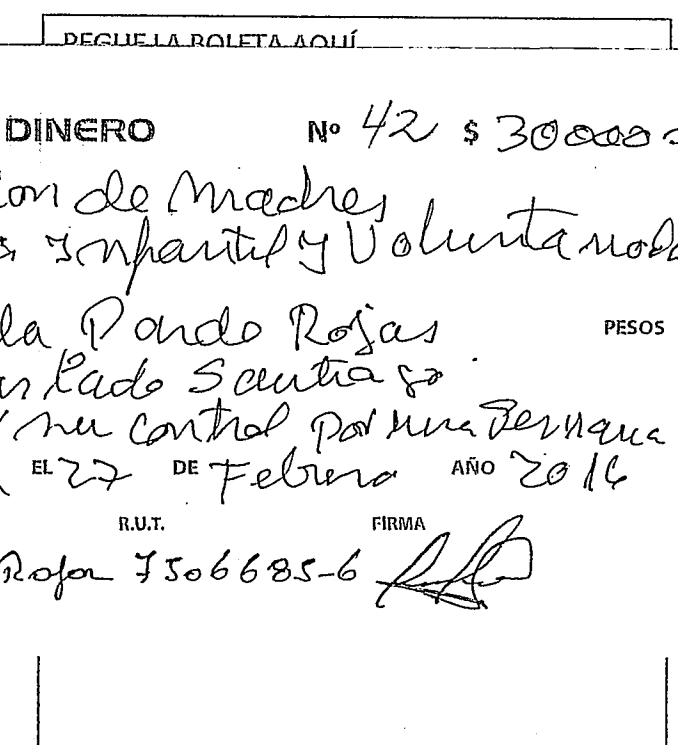 PEGUE LA BOLETA AQUÍ
DINERO Nº 42 $ 30000
ion de Madres
Infantil y Voluntariado
la Pardo Rojas PESOS
Santiago
control por una Semana
EL 27 DE Febrero AÑO 2016
R.U.T. FIRMA
Rojas 7506685-6